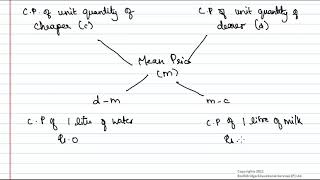 C.P. of unit quantity of
cheaper (c)
C.P. of unit quantity of
dearer (d)
Mean Price
(m)
d-m
m-c
C.P of 1 litre of water
Rs.0
C.P of 1 litre of milk
Rs.
Copyrights 2022